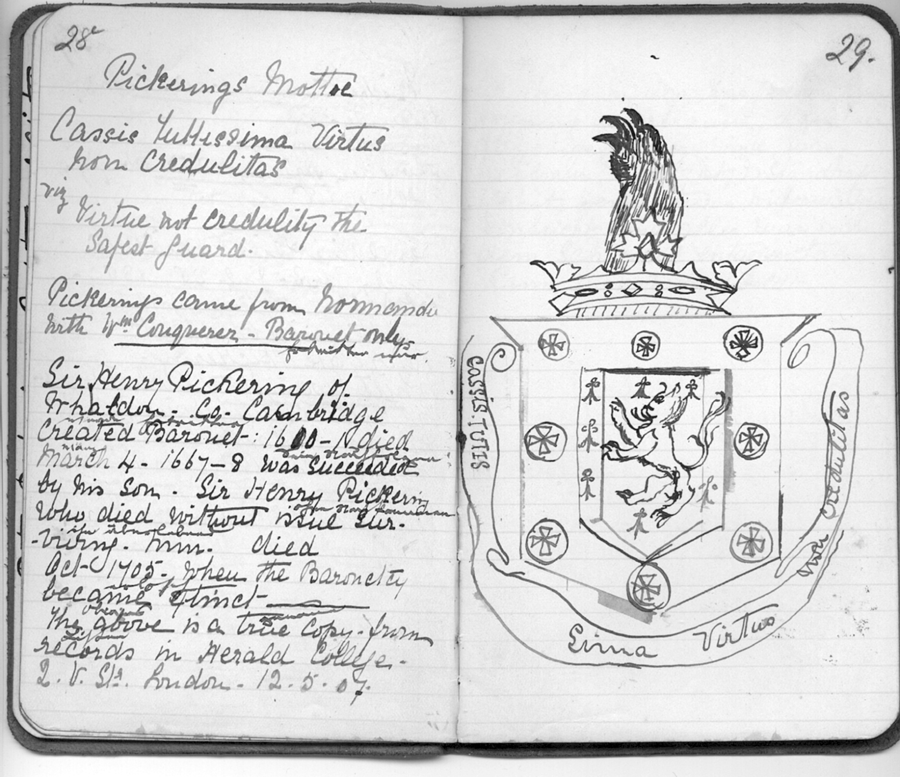 28
Pickerings Mottoe
Cassis Tuttissima Virtus
non Credulitas
viz
Virtue not credulity the
Safest Guard.
Pickerings came from Normandy
with Wm Conquerer - Baronet only
Sir Henry Pickering of
Whaddon - Co. Cambridge
Created Baronet: 16 - died
March 4 - 1667-8 was succeeded
by his son - Sir Henry Pickering
Who died without issue sur-
-viving. died
Oct - 1705. When the Baronetcy
became Extinct
The above is a true copy from
records in Herald College -
Q. V. St. London - 12. 5. 07.
29.
Cassis Tutis
Sima Virtus
non Credulitas